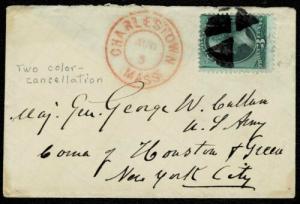 CHARLESTOWN
3
MASS.
Two color-
cancellation
Maj. Gen. George W. Cullum
U.S. Army
Corner of Houston & Green
New York City